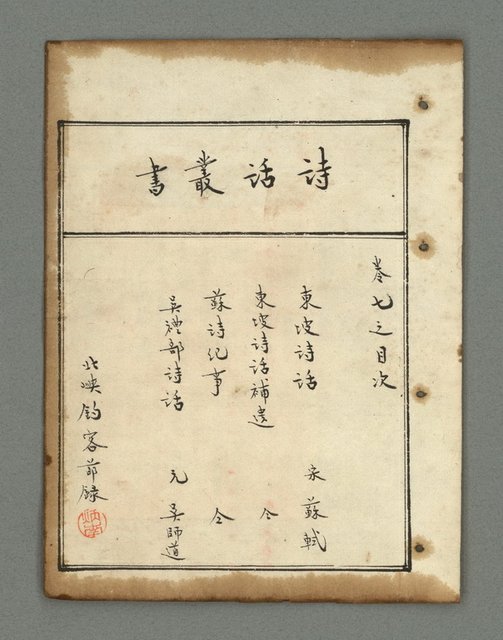 詩話叢書
卷七之目次
東坡詩話 宋 蘇軾
東坡詩話補遺 仝
蘇詩紀事 仝
吳禮部詩話 元 吳師道
北峽釣客節錄